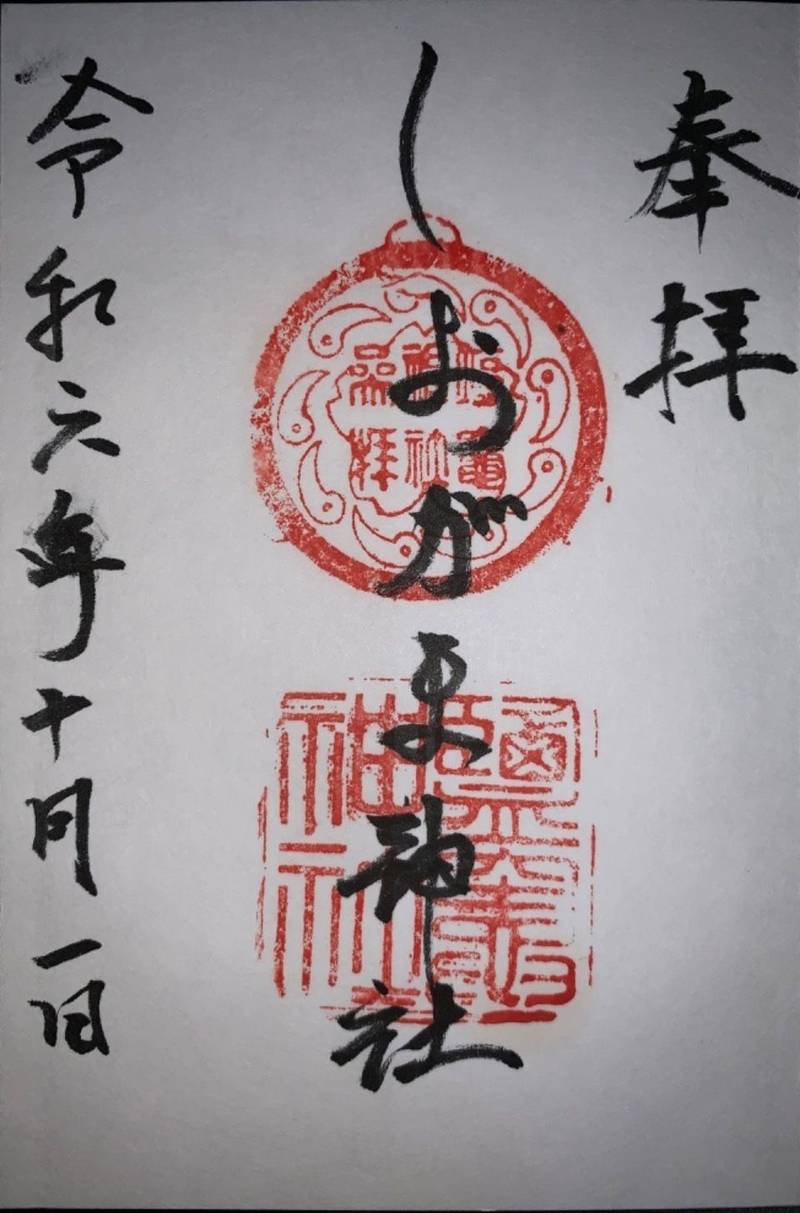 奉拝
しおがま神社
令和六年十月一日
鹽竈神社